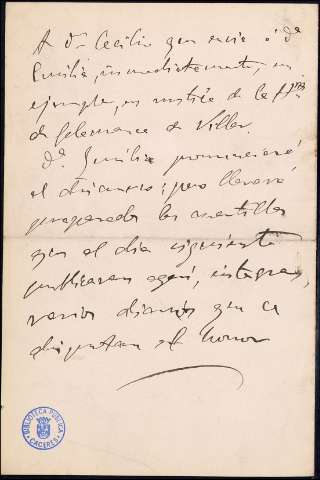 A Dn Cecilio que envie á Dª
Emilia, inmediatamente, un
ejemplar, en rústica de la
de Salamanca de Villar.
Dª Emilia pronunciará
el discurso; pero llevará
preparadas las cuartillas
que el dia siguiente
publicaran aquí, integras,
varios diarios que se
disputan el honor
BIBLIOTECA PÚBLICA
CÁCERES